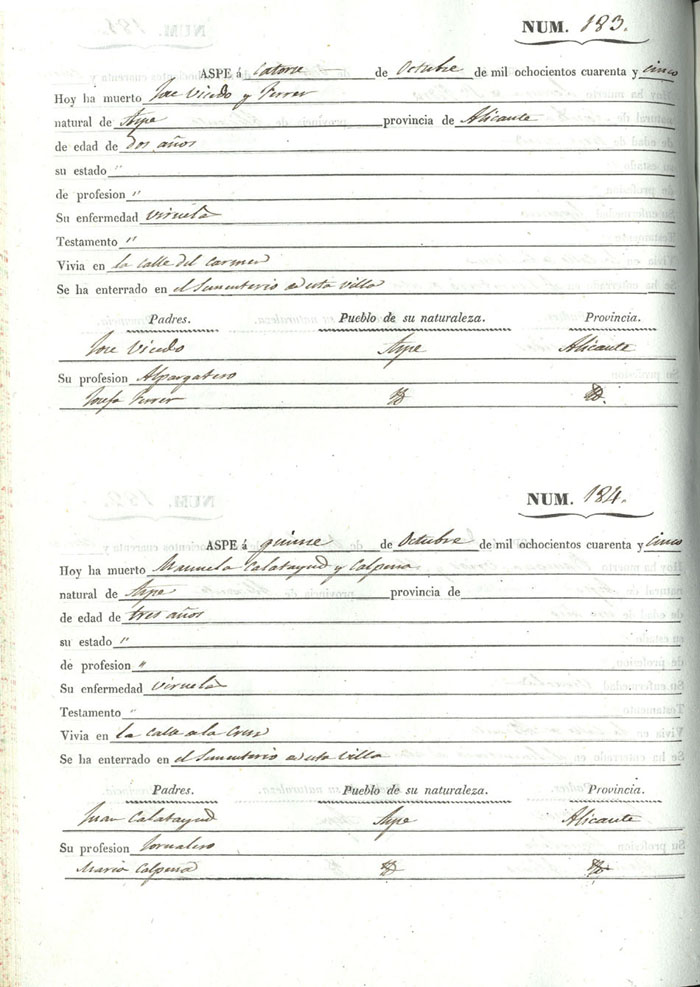 NUM. 183.
ASPE á Catorse de Octubre de mil ochocientos cuarenta y cinco
Hoy ha muerto Jose Vicedo y Ferrer
natural de Aspe provincia de Alicante
de edad de dos años
su estado "
de profesion "
Su enfermedad Viruela
Testamento "
Vivia en la calle del Carmen
Se ha enterrado en el Sementerio de esta Villa
Padres. Pueblo de su naturaleza. Provincia.
Jose Vicedo Aspe Alicante
Su profesion Alpargatero
Josefa Ferrer
NUM. 184.
ASPE á quinse de Octubre de mil ochocientos cuarenta y cinco
Hoy ha muerto Manuela Calatayud y Calpena
natural de Aspe provincia de
de edad de tres años
su estado "
de profesion "
Su enfermedad Viruela
Testamento "
Vivia en la Calle de la Cruz
Se ha enterrado en el Sementerio de esta Villa
Padres. Pueblo de su naturaleza. Provincia.
Juan Calatayud Aspe Alicante
Su profesion Jornalero
Maria Calpena